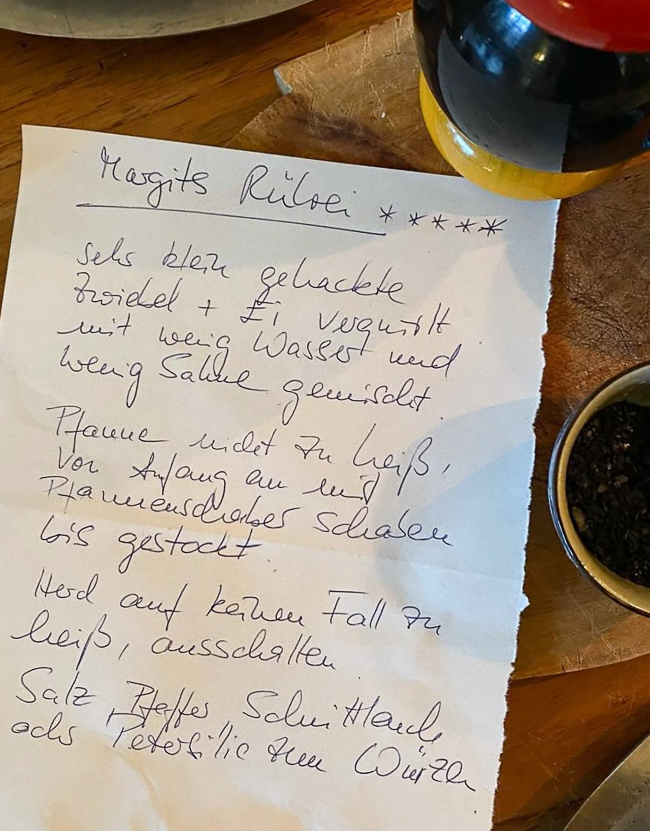 Margits Rührei * * * * *
sehr klein gehackte
Zwiebel + Ei verquirlt
mit wenig Wasser und
wenig Sahne gemischt.
Pfanne nicht zu heiß,
von Anfang an mit
Pfannenschaber schaben
bis gestockt
Herd auf keinen Fall zu
heiß, ausschalten
Salz Pfeffer Schnittlauch
oder Petersilie zum Würzen